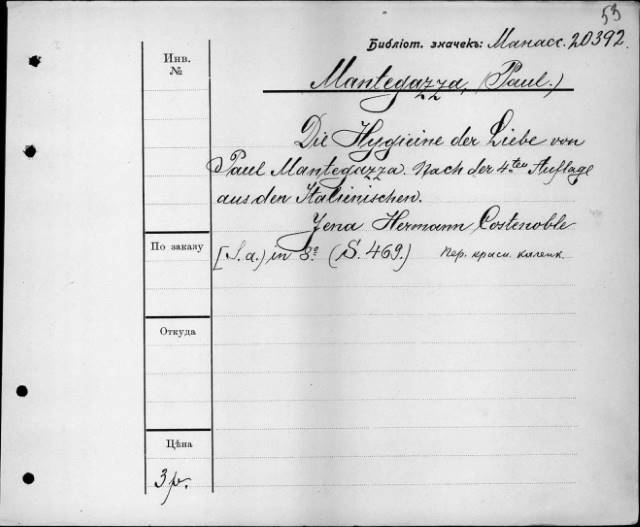 53
Библіот. значекъ: Манасс. 20392.
Инв.
№
Mantegazza, (Paul.)
Die Hygieine der Liebe von
Paul Mantegazza. Nach der 4.ten Auflage
aus den Italienischen.
Jena Hermann Costenoble
По заказу
[S. a.) in 8.° (S. 469.) Пер. красн. каленк.
Откуда
Цѣна
3 р.